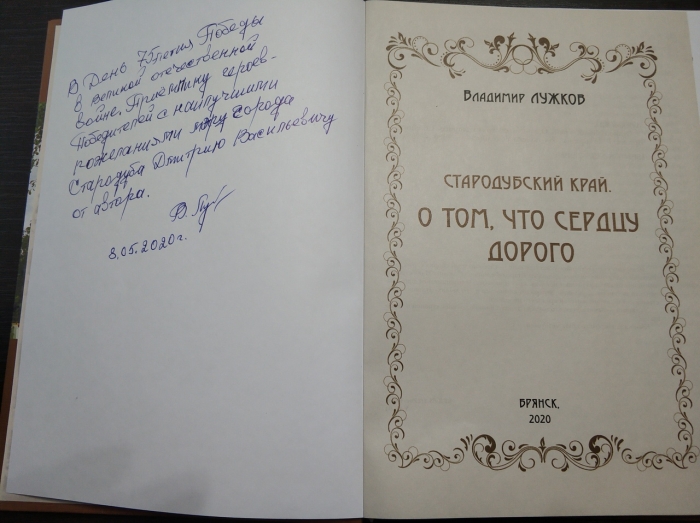 В День 75летия Победы
в великой отечественной
войне. Преемнику героев-
победителей с наилучшими
пожеланиями мэру города
Стародуба Дмитрию Васильевичу
от автора.
8.05.2020г.
Владимир ЛУЖКОВ
СТАРОДУБСКИЙ КРАЙ.
О ТОМ, ЧТО СЕРДЦУ
ДОРОГО
БРЯНСК,
2020